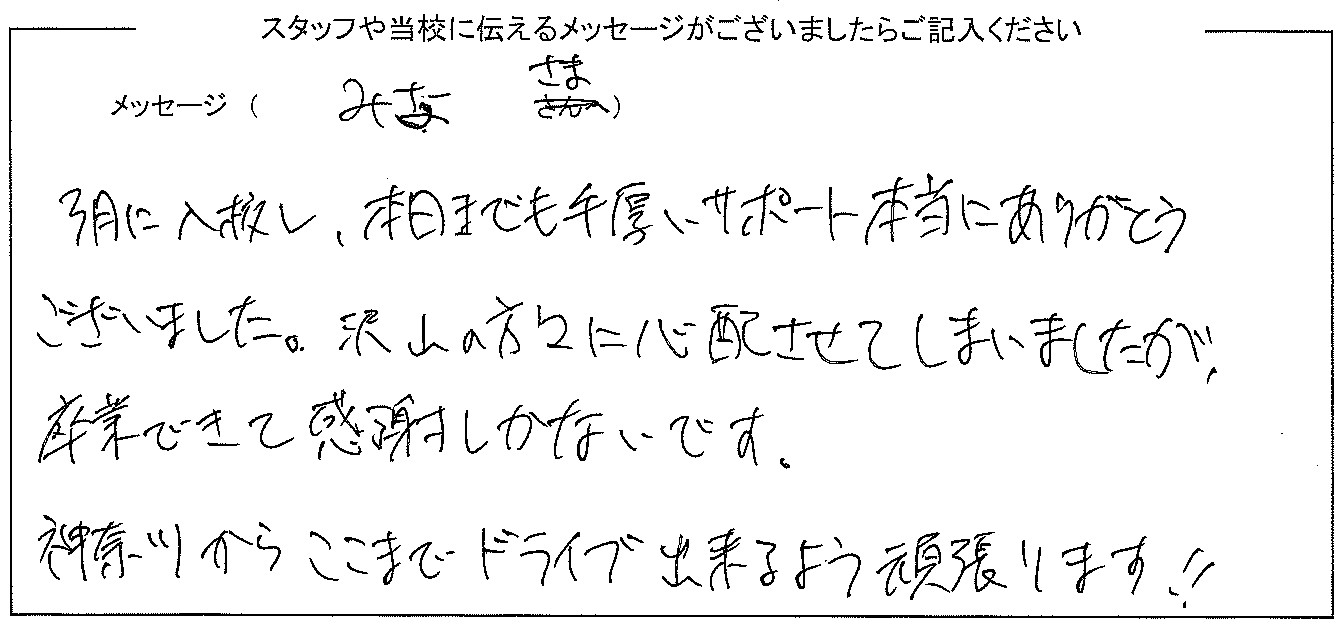 スタッフや当校に伝えるメッセージがございましたらご記入ください
さま
メッセージ ( みなさんへ)
3月に入校し、本日までも手厚いサポート本当にありがとう
ございました。沢山の方々に心配させてしまいましたが、
卒業できて感謝しかないです。
神奈川からここまでドライブ出来るよう頑張ります!!